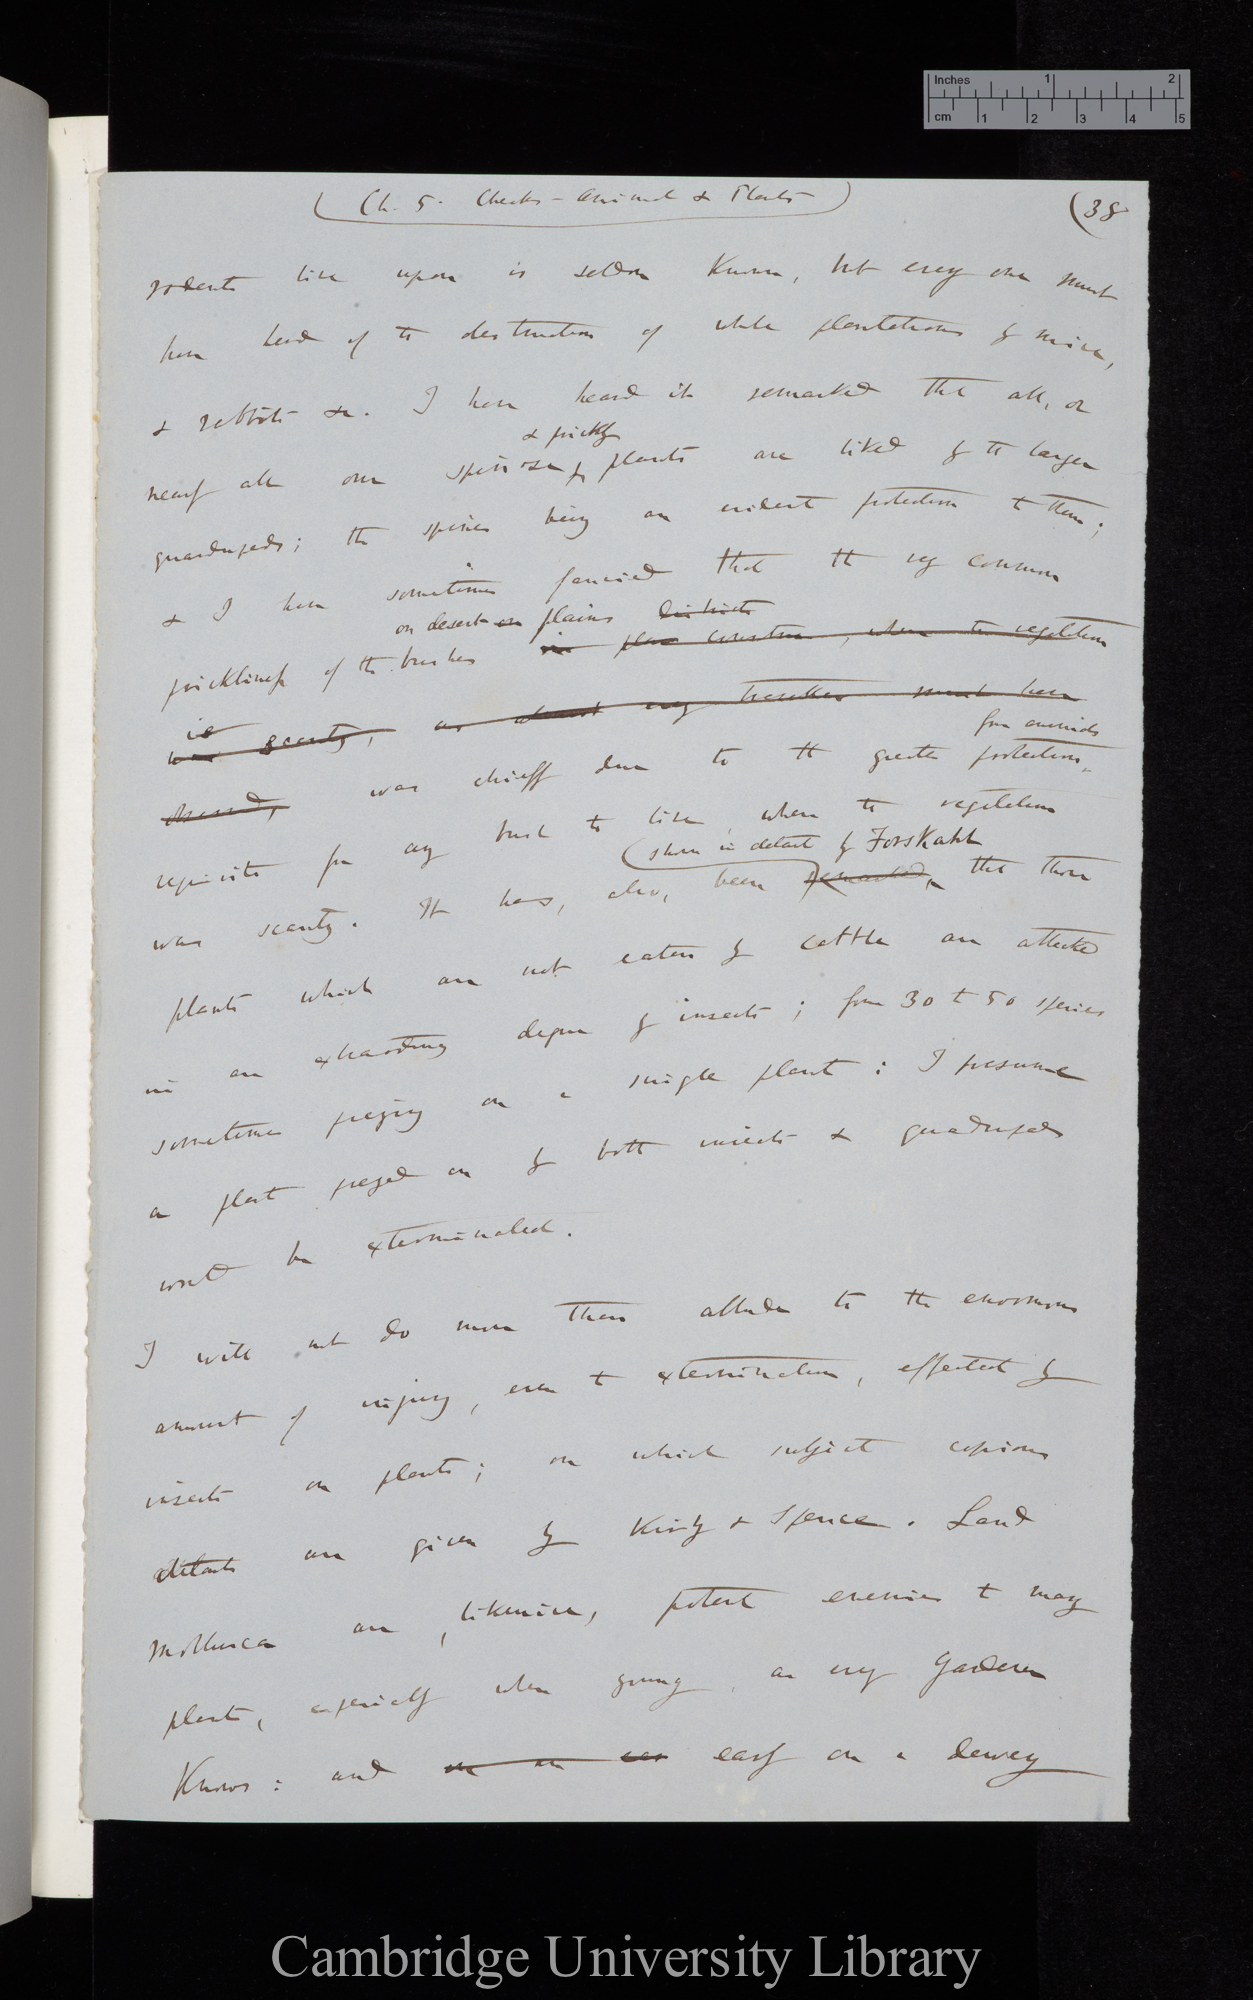 Inches 1 2
cm 1 2 3 4 5
Ch. 5. Checks – Animal & Plants (38
rodents live upon is seldom known, but every one must
have heard of the destruction of whole plantations by mice,
& rabbits &c. I have heard it remarked that all, or
& prickly
nearly all our spinose plants are liked by the larger
quadrupeds; the spines being an evident protection to them;
& I have sometimes fancied that the very common
on desert on plains districts
prickliness of the bushes in countries, where the vegetation
is
was scanty, as almost every traveller must have
from animals
observed, was chiefly due to the greater protection,
requisite for any bush to live, where the vegetation
shown in detail by Forskahl
was scanty. It has, also, been remarked, that those
plants which are not eaten by cattle are attacked
in an extraordinary degree by insects; from 30 to 50 species
sometimes preying on a single plant: I presume
a plant preyed on by both insects & quadrupeds
would be exterminated.
I will not do more than allude to the enormous
amount of injury, even to extermination, effected by
insects on plants; on which subject copious
details are given by Kirby & Spence. Land
Mollusca are, likewise, potent enemies to many
plants, especially when young, as every Gardener
knows: and early on a dewey
Cambridge University Library